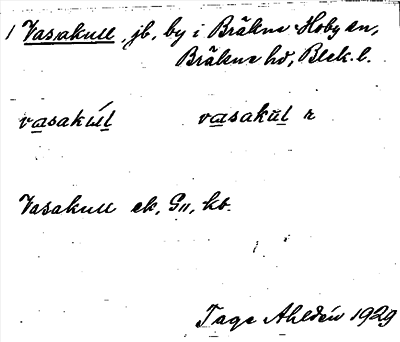 1 Vasakull, jb, by i Bräkne-Hoby sn,
Bräkne hd, Blek. l.
vasakúl vasakūl r
Vasakull ek, G11, kb.
Tage Ahldén 1929